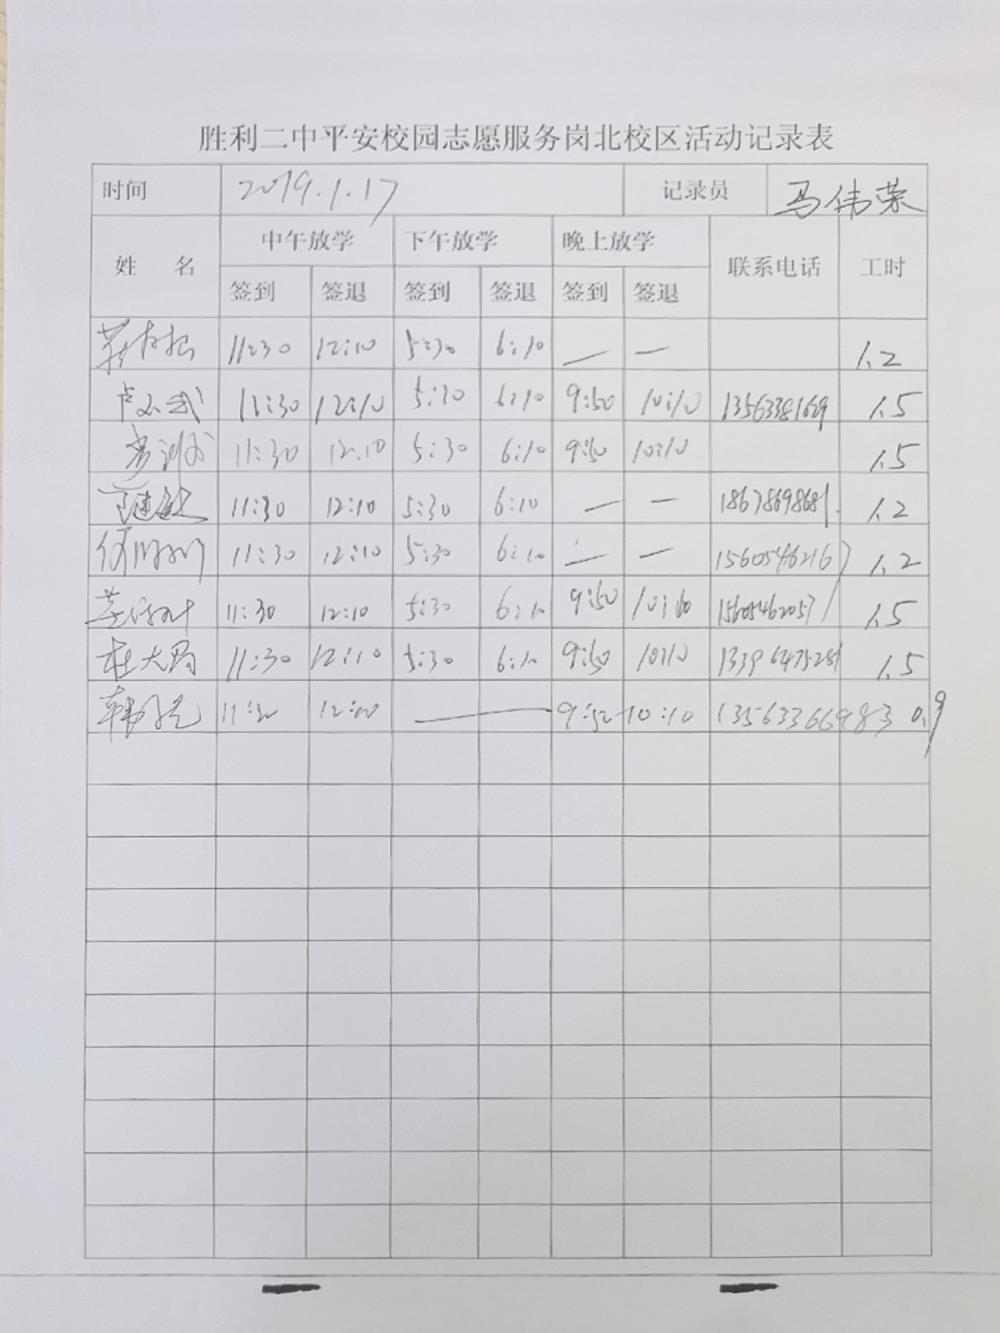 胜利二中平安校园志愿服务岗北校区活动记录表
时间 2019.1.17 记录员 马伟荣
姓 名 中午放学 下午放学 晚上放学 联系电话 工时
签到 签退 签到 签退 签到 签退
11:30 12:10 5:30 6:10 — — 1.2
11:30 12:10 5:30 6:10 9:50 10:10 13563381629 1.5
11:30 12:10 5:30 6:10 9:50 10:10 1.5
11:30 12:10 5:30 6:10 — — 18678698681 1.2
11:30 12:10 5:30 6:10 — — 1.2
11:30 12:10 5:30 6:10 9:50 1.5
杜大勇 11:30 12:10 5:30 6:10 9:50 10:10 1.5
11:30 — 9:52 10:10 13563366983 0.9